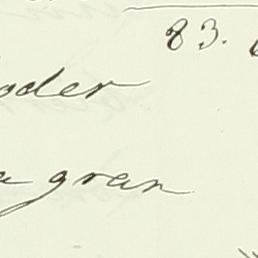 83.
oder
a gran